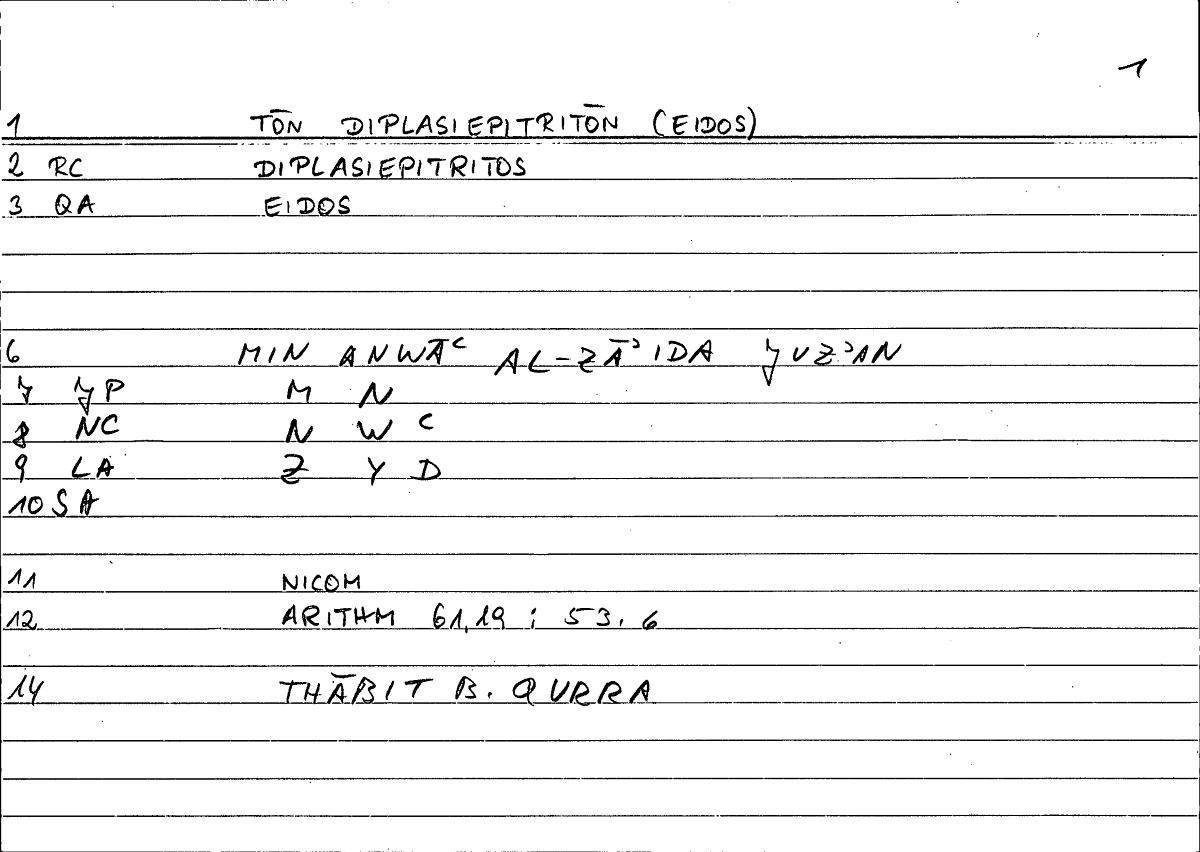 1
1 TŌN DIPLASIEPITRITŌN (EIDOS)
2 RC DIPLASIEPITRITOS
3 QA EIDOS
6 MIN ANWĀʿ AL-ZĀʾIDA ǰUZʾAN
7 ǰP M N
8 NC N W ʿ
9 LA Z Y D
10 SA
11 NICOM
12 ARITHM 61,19 ; 53.6
14 THĀBIT B. QURRA